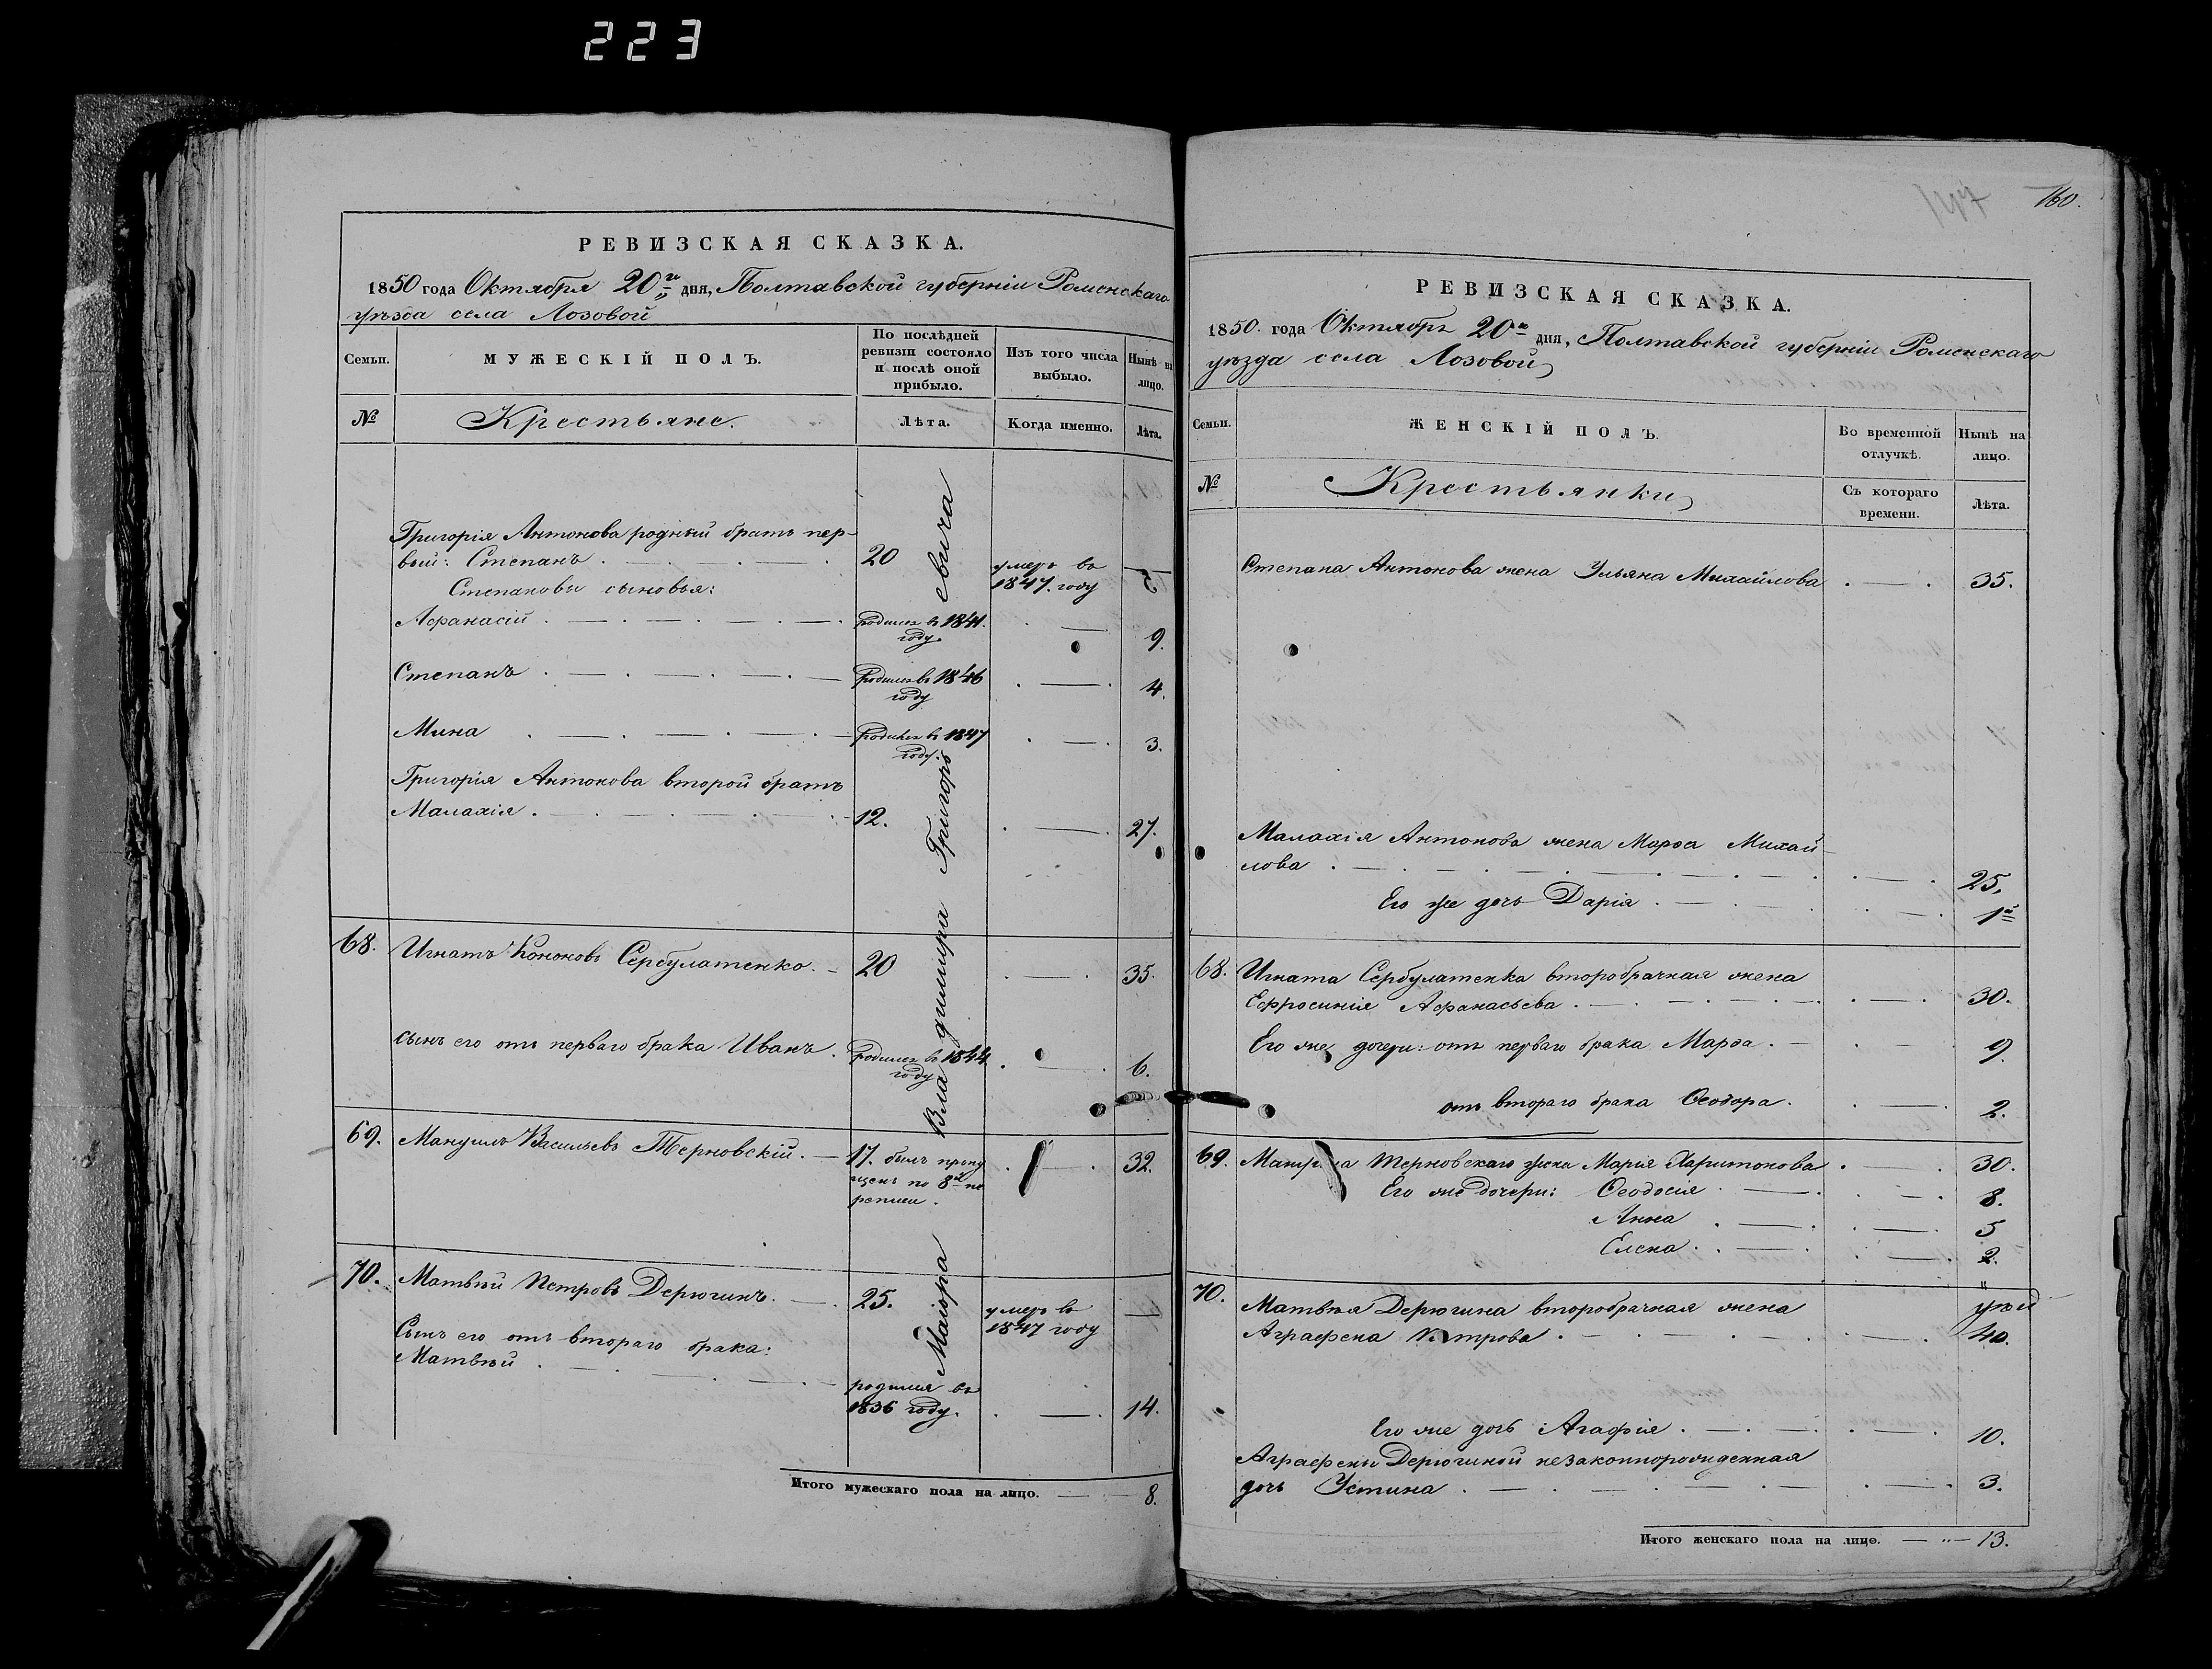 223
РЕВИЗСКАЯ СКАЗКА.
1850 года Октября 20го дня, Полтавской губерніи Роменскаго
уѣзда села Лозовой
Семьи.
МУЖЕСКІЙ ПОЛЪ.
По послѣдней
ревизіи состояло
и послѣ оной
прибыло.
Изъ того числа
выбыло.
Нынѣ на
лицо.
№
Крестьяне.
Лѣта.
Когда именно.
Лѣта.
Григорія Антонова родный братъ пер-
вый: Степанъ 20 умеръ въ
1847. году
Степановы сыновья:
Афанасій родился въ 1841. 9.
году.
Степанъ родился въ 1846 4.
году
Мина родился въ 1847 3.
году.
Григорія Антонова второй братъ
Малахія 12. 27.
68. Игнатъ Кононовъ Сербулатенко. 20 35.
сынъ его отъ перваго брака Иванъ. родился въ 1844 6.
году
69. Мануилъ Васильевъ Терновскій. 17. былъ пропу 32.
щенъ по 8й пе
реписи.
70. Матвѣй Петровъ Дерюгинъ. 25. умеръ въ
1847 году
Сынъ его отъ втораго брака:
Матвѣй родился въ
1836 году. 14.
Итого мужескаго пола на лицо. 8.
Маіора Владимира Григорьевича
160.
РЕВИЗСКАЯ СКАЗКА.
1850. года Октября 20го дня, Полтавской губерніи Роменскаго
уѣзда села Лозовой
Семьи.
ЖЕНСКІЙ ПОЛЪ.
Во временной
отлучкѣ.
Нынѣ на
лицо.
№
Крестьянки
Съ котораго
времени.
Лѣта.
Степана Антонова жена Ульяна Михайлова 35.
Малахія Антонова жена Марфа Михай-
лова 25.
Его же дочь Дарія 1й
68. Игната Сербулатенка второбрачная жена
Ефросинія Афанасьева 30.
Его же дочери: отъ перваго брака Марфа. 9.
отъ втораго брака Феодора. 2.
69. Мануила Терновскаго жена Марія Харитонова 30.
Его же дочери: Феодосія 8.
Анна 5
Елена. 2.
70. Матвѣя Дерюгина второбрачная жена
Аграфена Петрова 40.
Его же дочь Агафія 10.
Аграфены Дерюгиной незаконнорожденная
дочь Устина 3.
Итого женскаго пола на лицо. 13.